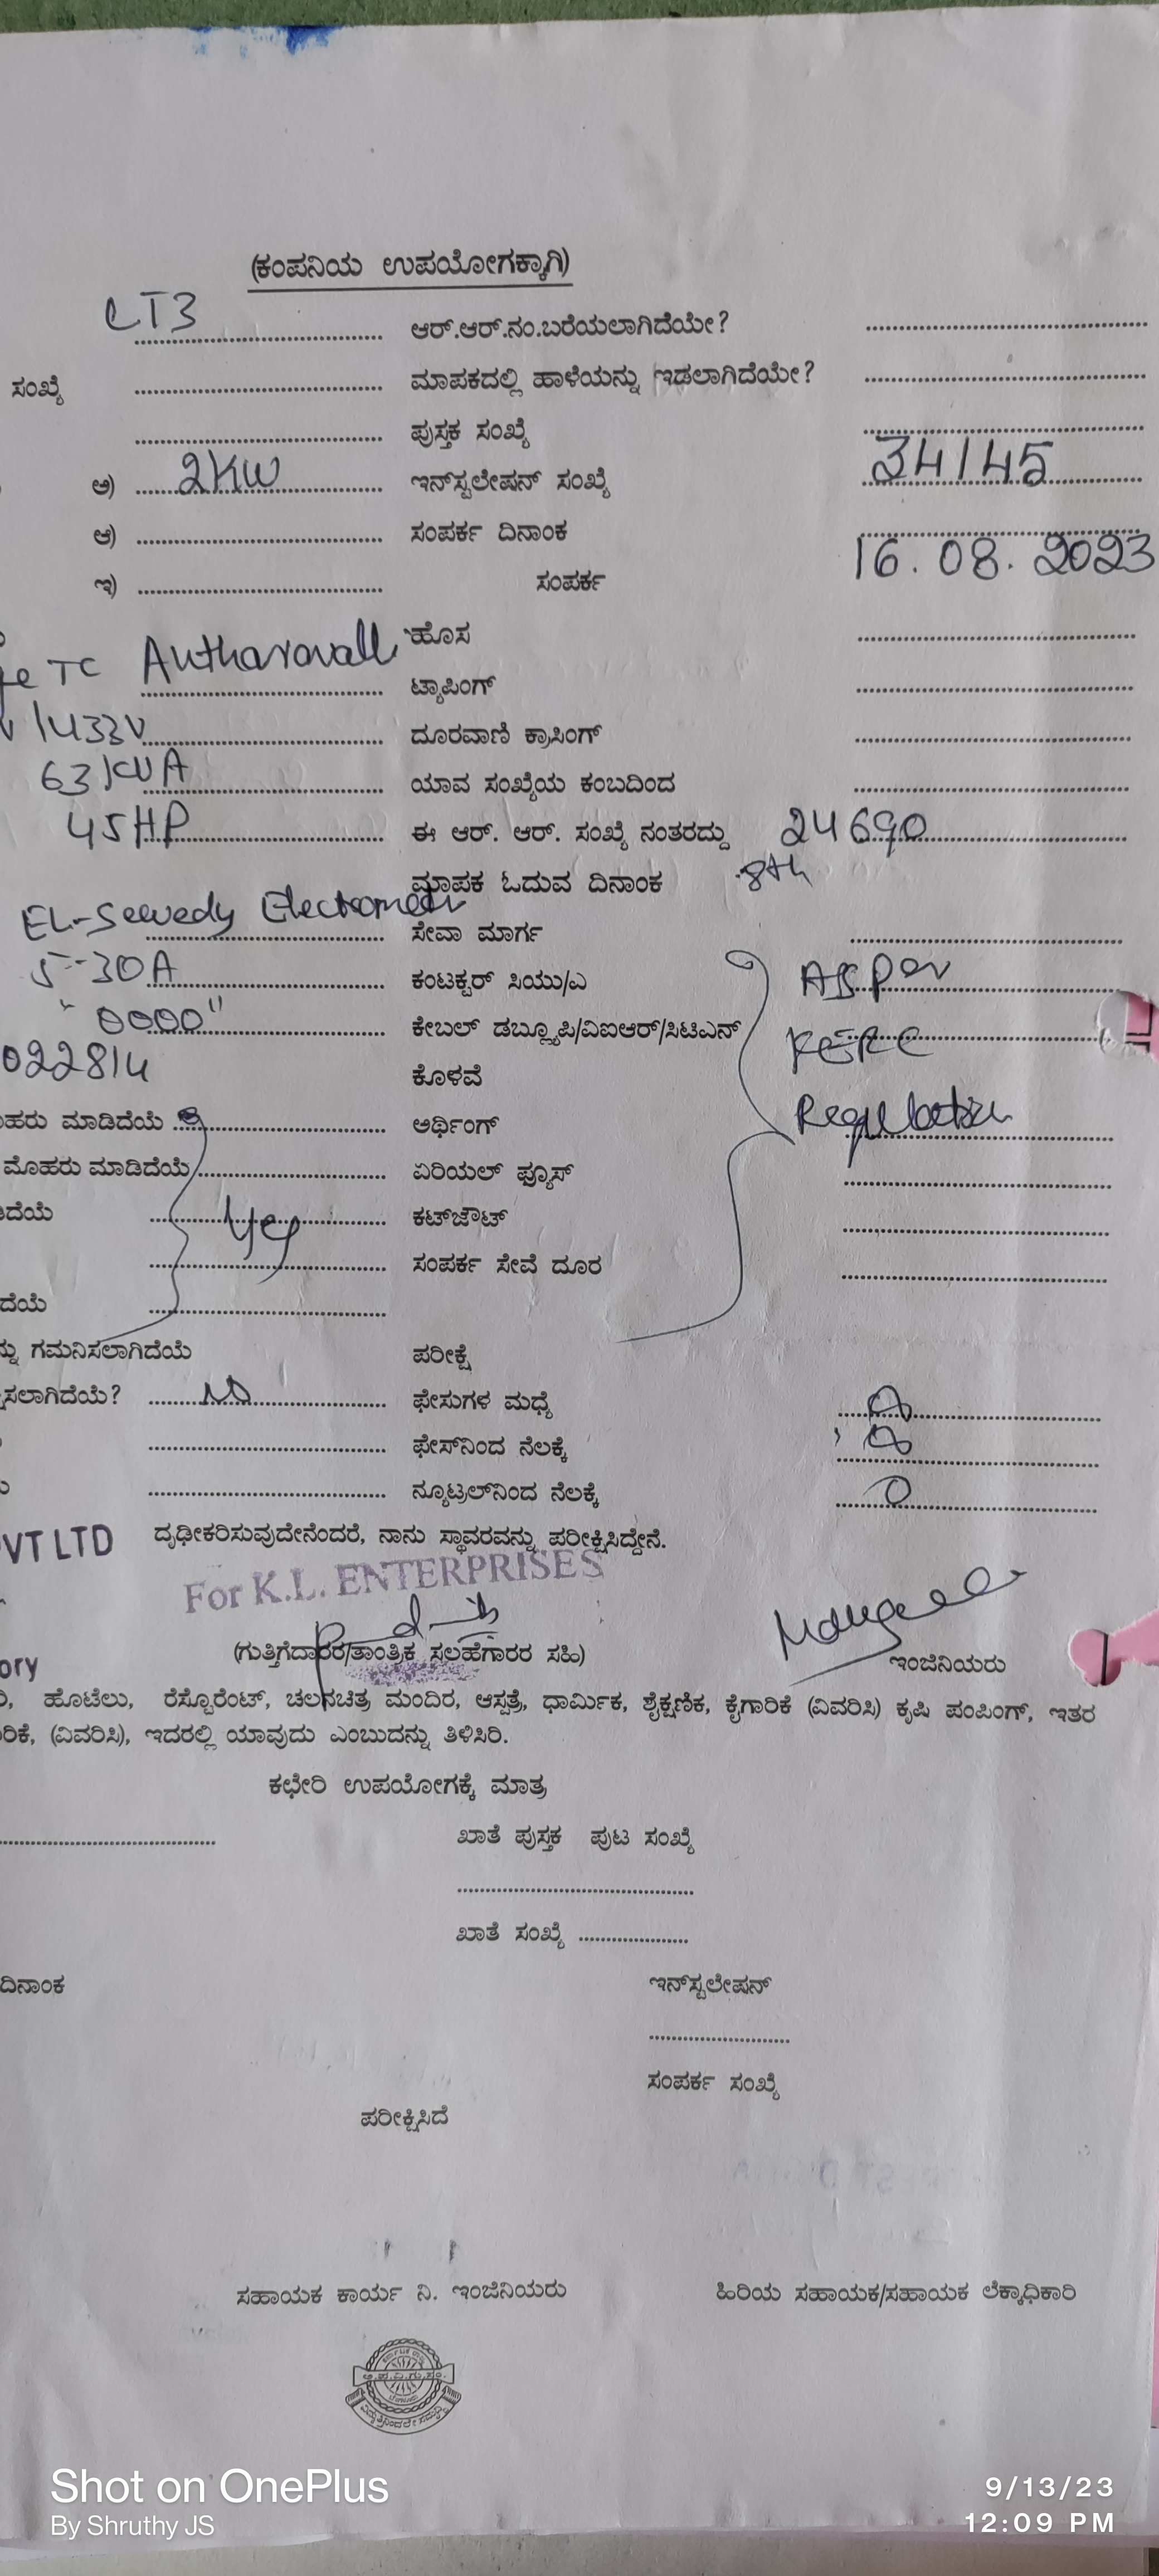 (ಕಂಪನಿಯ ಉಪಯೋಗಕ್ಕಾಗಿ)
LT3 ಆರ್.ಆರ್.ನಂ.ಬರೆಯಲಾಗಿದೆಯೇ?
ಸಂಖ್ಯೆ ಮಾಪಕದಲ್ಲಿ ಹಾಳೆಯನ್ನು ಇಡಲಾಗಿದೆಯೇ?
ಪುಸ್ತಕ ಸಂಖ್ಯೆ
ಅ) 2KW ಇನ್‌ಸ್ಟಲೇಷನ್ ಸಂಖ್ಯೆ 34145
ಆ) ಸಂಪರ್ಕ ದಿನಾಂಕ 16.08.2023
ಇ) ಸಂಪರ್ಕ
TC Antharavalli ಹೊಸ
ಟ್ಯಾಪಿಂಗ್
/433V ದೂರವಾಣಿ ಕ್ರಾಸಿಂಗ್
63KVA ಯಾವ ಸಂಖ್ಯೆಯ ಕಂಬದಿಂದ
45HP ಈ ಆರ್. ಆರ್. ಸಂಖ್ಯೆ ನಂತರದ್ದು 24690
ಮಾಪಕ ಓದುವ ದಿನಾಂಕ 8th
EL-Sewedy Electrometer ಸೇವಾ ಮಾರ್ಗ
5-30A ಕಂಟಕ್ಟರ್ ಸಿಯು/ಎ As per
"0000" ಕೇಬಲ್ ಡಬ್ಲ್ಯೂಪಿ/ವಿಐಆರ್/ಸಿಟಿಎನ್ KERC
022814 ಕೊಳವೆ
ಹರು ಮಾಡಿದೆಯೆ ಅರ್ಥಿಂಗ್ Regulation
ಮೊಹರು ಮಾಡಿದೆಯೆ ಏರಿಯಲ್ ಫ್ಯೂಸ್
ದೆಯೆ Yes ಕಟ್‌ಜೌಟ್
ಸಂಪರ್ಕ ಸೇವೆ ದೂರ
ದೆಯೆ
ನ್ನು ಗಮನಿಸಲಾಗಿದೆಯೆ ಪರೀಕ್ಷೆ
ಸಲಾಗಿದೆಯೆ? No ಫೇಸುಗಳ ಮಧ್ಯೆ
ಫೇಸ್‌ನಿಂದ ನೆಲಕ್ಕೆ
ನ್ಯೂಟ್ರಲ್‌ನಿಂದ ನೆಲಕ್ಕೆ
VT LTD ದೃಢೀಕರಿಸುವುದೇನೆಂದರೆ, ನಾನು ಸ್ಥಾವರವನ್ನು ಪರೀಕ್ಷಿಸಿದ್ದೇನೆ.
For K.L. ENTERPRISES
ory (ಗುತ್ತಿಗೆದಾರರ/ತಾಂತ್ರಿಕ ಸಲಹೆಗಾರರ ಸಹಿ) ಇಂಜಿನಿಯರು
ಹೊಟೆಲು, ರೆಸ್ಟೊರೆಂಟ್, ಚಲನಚಿತ್ರ ಮಂದಿರ, ಆಸ್ಪತ್ರೆ, ಧಾರ್ಮಿಕ, ಶೈಕ್ಷಣಿಕ, ಕೈಗಾರಿಕೆ (ವಿವರಿಸಿ) ಕೃಷಿ ಪಂಪಿಂಗ್, ಇತರ
ರಿಕೆ, (ವಿವರಿಸಿ), ಇದರಲ್ಲಿ ಯಾವುದು ಎಂಬುದನ್ನು ತಿಳಿಸಿರಿ.
ಕಛೇರಿ ಉಪಯೋಗಕ್ಕೆ ಮಾತ್ರ
ಖಾತೆ ಪುಸ್ತಕ ಪುಟ ಸಂಖ್ಯೆ
ಖಾತೆ ಸಂಖ್ಯೆ
ದಿನಾಂಕ ಇನ್‌ಸ್ಟಲೇಷನ್
ಸಂಪರ್ಕ ಸಂಖ್ಯೆ
ಪರೀಕ್ಷಿಸಿದೆ
ಸಹಾಯಕ ಕಾರ್ಯ ನಿ. ಇಂಜಿನಿಯರು ಹಿರಿಯ ಸಹಾಯಕ/ಸಹಾಯಕ ಲೆಕ್ಕಾಧಿಕಾರಿ
Shot on OnePlus
By Shruthy JS
9/13/23
12:09 PM